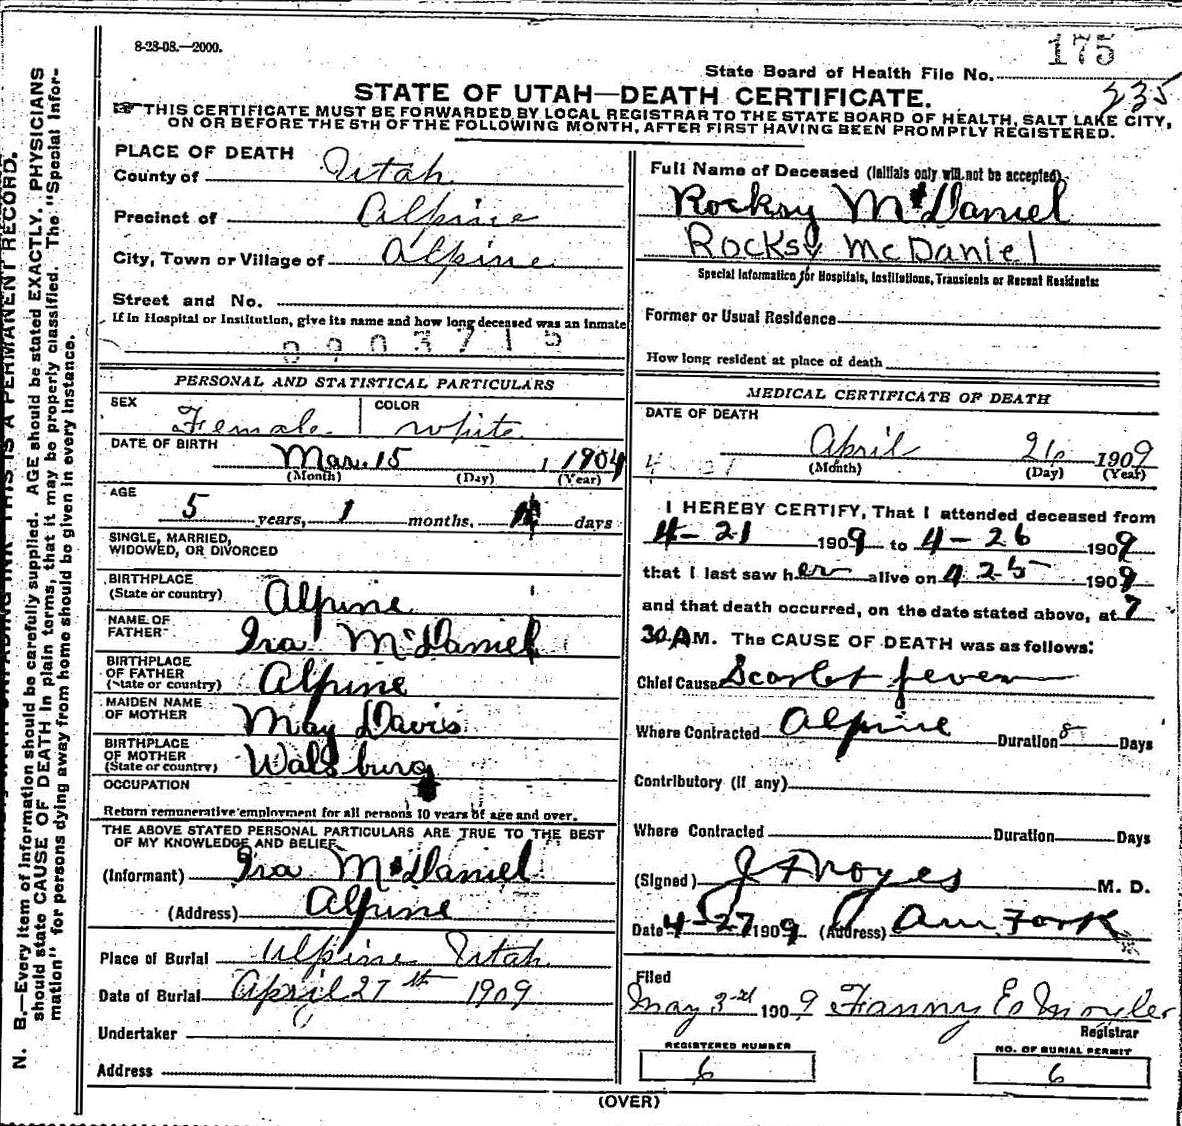 8-28-08.—2000.
175
State Board of Health File No.
235
STATE OF UTAH—DEATH CERTIFICATE.
THIS CERTIFICATE MUST BE FORWARDED BY LOCAL REGISTRAR TO THE STATE BOARD OF HEALTH, SALT LAKE CITY,
ON OR BEFORE THE 5TH OF THE FOLLOWING MONTH, AFTER FIRST HAVING BEEN PROMPTLY REGISTERED.
PLACE OF DEATH
County of Utah
Precinct of Alpine
City, Town or Village of Alpine
Street and No.
If in Hospital or Institution, give its name and how long deceased was an inmate
0903715
PERSONAL AND STATISTICAL PARTICULARS
SEX Female COLOR white
DATE OF BIRTH
Mar. 15 1 1904
(Month) (Day) (Year)
AGE
5 years, 1 months, days
SINGLE, MARRIED,
WIDOWED, OR DIVORCED
BIRTHPLACE
(State or country) Alpine
NAME OF
FATHER Ira McDaniel
BIRTHPLACE
OF FATHER
(State or country) Alpine
MAIDEN NAME
OF MOTHER May Davis
BIRTHPLACE
OF MOTHER
(State or country) Walsburg
OCCUPATION
Return remunerative employment for all persons 10 years of age and over.
THE ABOVE STATED PERSONAL PARTICULARS ARE TRUE TO THE BEST
OF MY KNOWLEDGE AND BELIEF
(Informant) Ira McDaniel
(Address) Alpine
Place of Burial Alpine Utah
Date of Burial April 27th 1909
Undertaker
Address
Full Name of Deceased (Initials only will not be accepted)
Rocksy McDaniel
Rocksy McDaniel
Special Information for Hospitals, Institutions, Transients or Recent Residents:
Former or Usual Residence
How long resident at place of death
MEDICAL CERTIFICATE OF DEATH
DATE OF DEATH
April 26 1909
(Month) (Day) (Year)
I HEREBY CERTIFY, That I attended deceased from
4-21 1909 to 4-26 1909
that I last saw her alive on 4 25 1909
and that death occurred, on the date stated above, at 7
30 A M. The CAUSE OF DEATH was as follows:
Chief Cause Scarlet fever
Where Contracted Alpine Duration 8 Days
Contributory (if any)
Where Contracted Duration Days
(Signed) J F Noyes M. D.
Date 4-27 1909 (Address) Am. Fork
Filed
May 3rd 1909 Fanny E
Registrar
REGISTERED NUMBER
6
NO. OF BURIAL PERMIT
6
(OVER)
N. B.—Every item of information should be carefully supplied. AGE should be stated EXACTLY. PHYSICIANS
should state CAUSE OF DEATH in plain terms, that it may be properly classified. The "Special Infor-
mation" for persons dying away from home should be given in every instance.
THIS IS A PERMANENT RECORD.